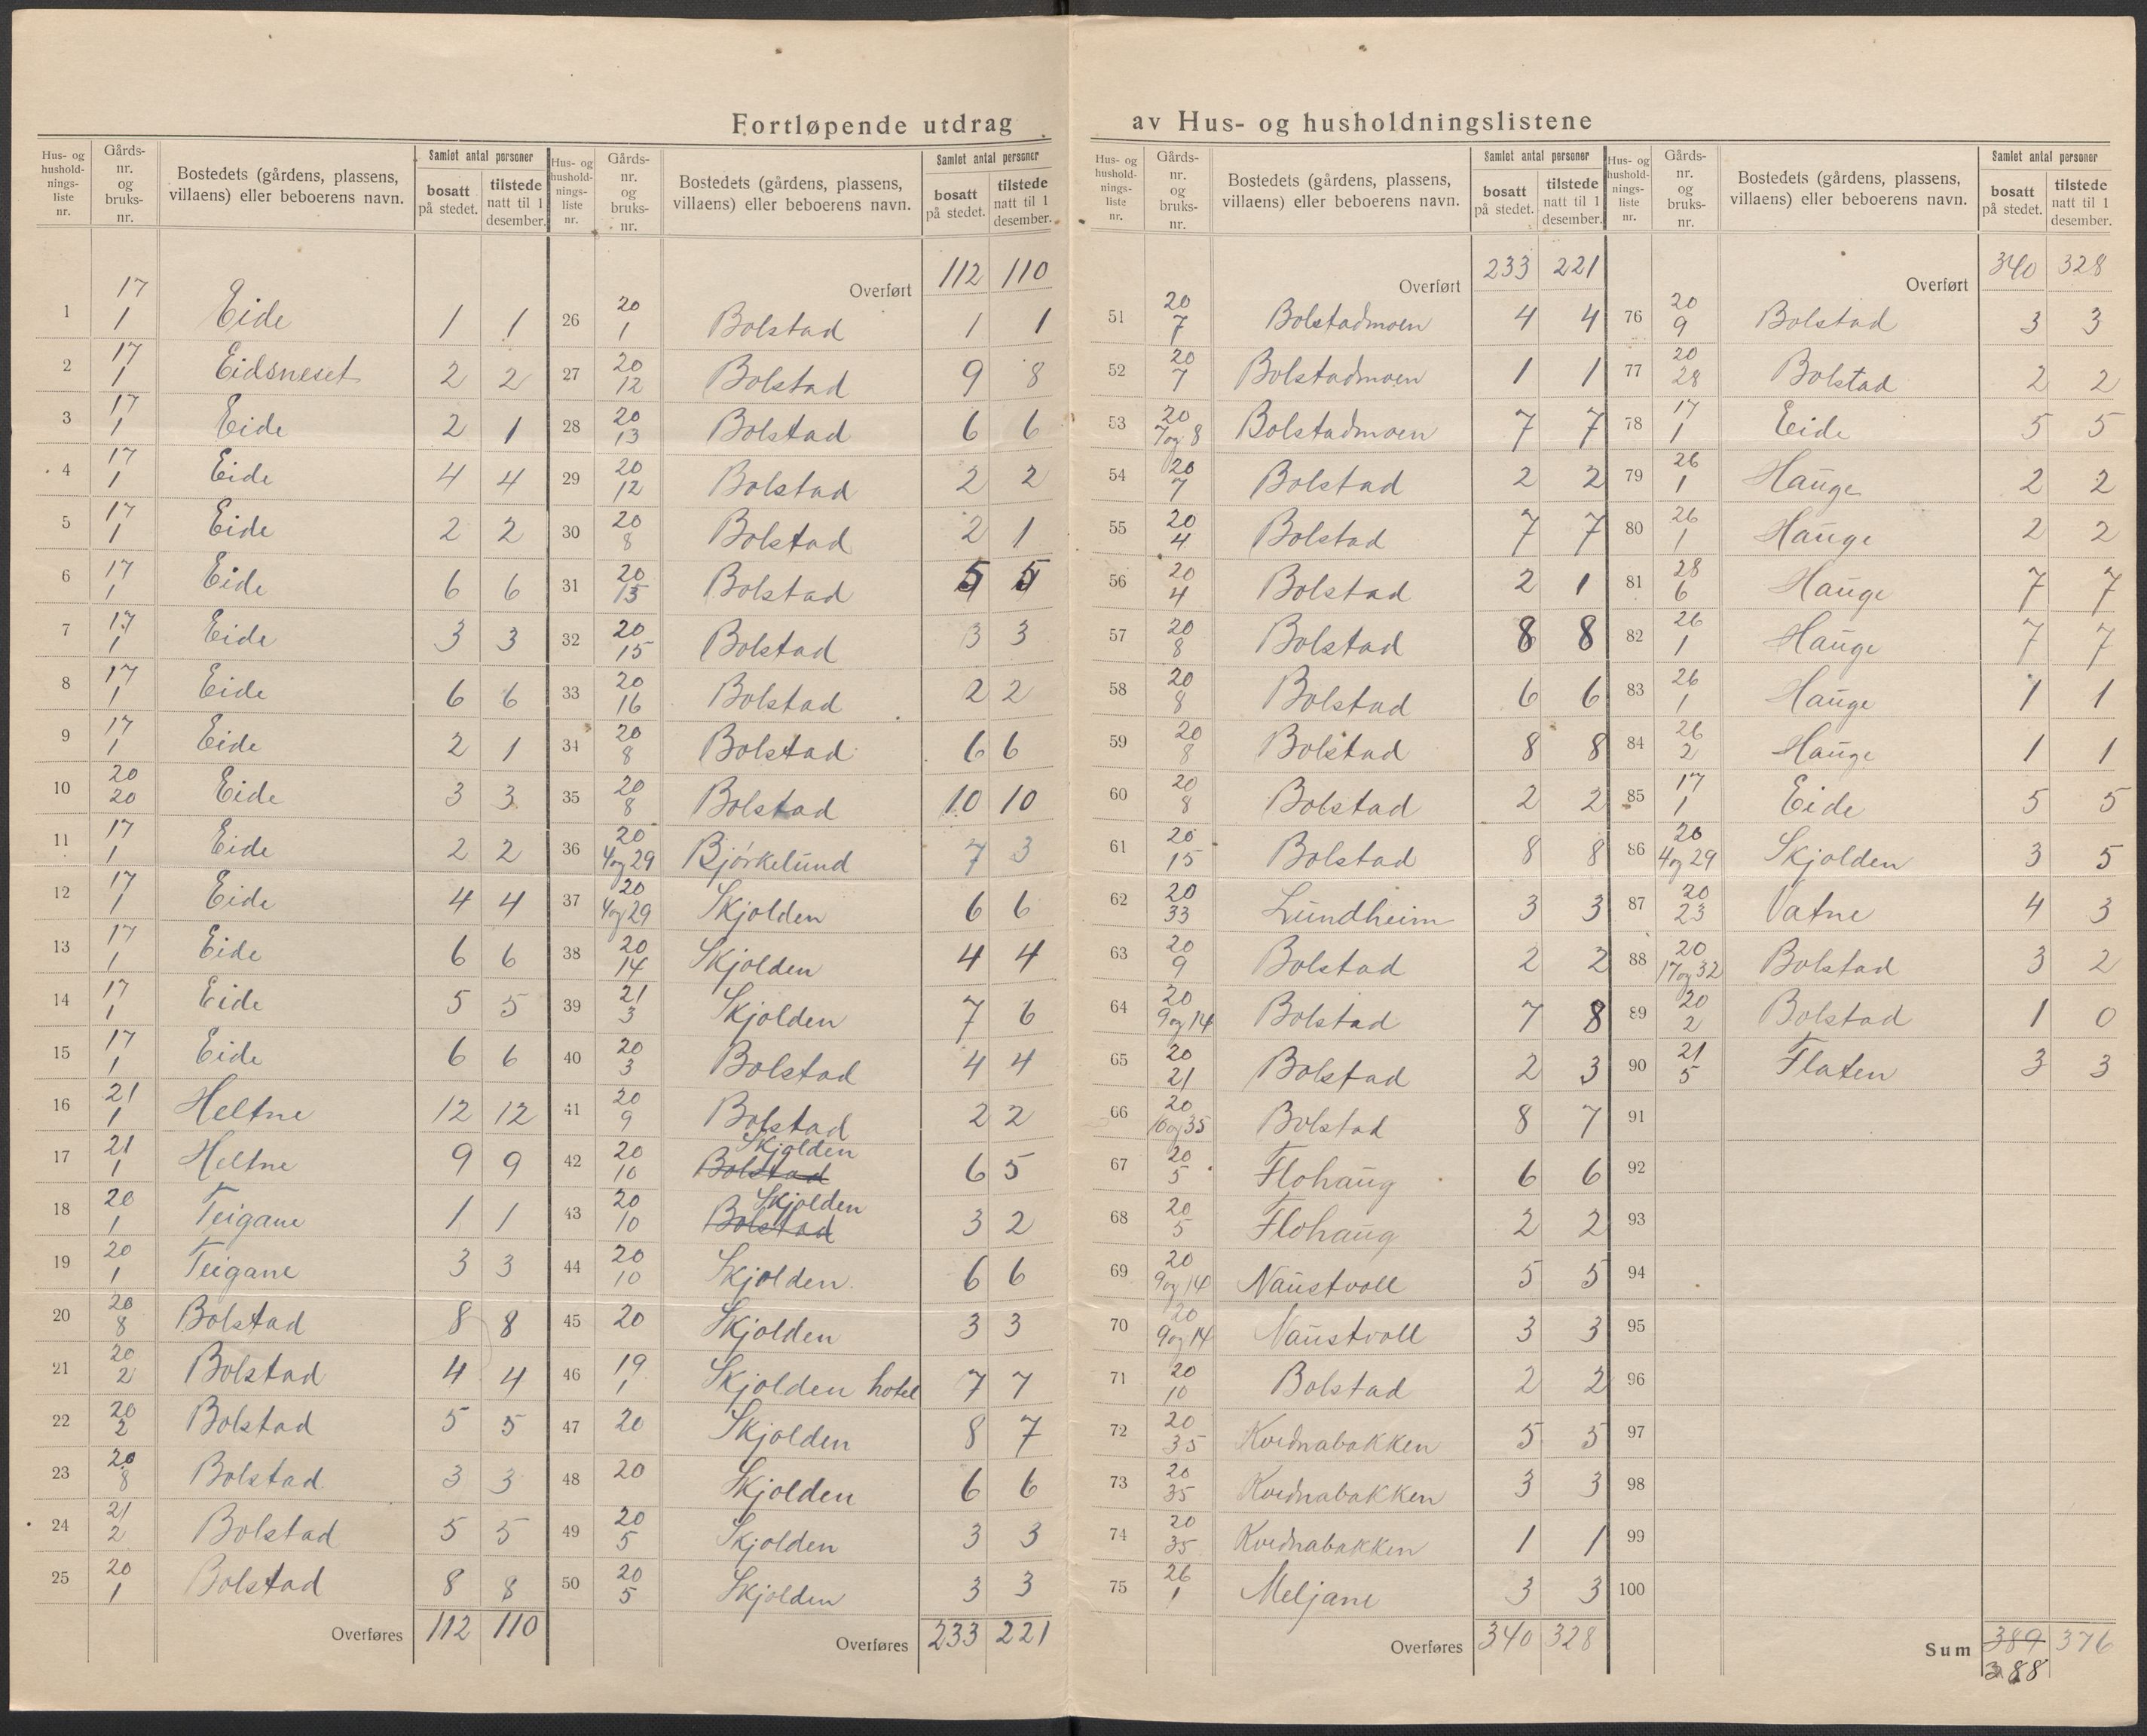 Fortløpende utdrag av Hus- og husholdningslistene
Hus- og hushold-nings-liste nr. | Gårds-nr. og bruks-nr. | Bostedets (gårdens, plassens, villaens) eller beboerens navn. | Samlet antal personer | bosatt på stedet. | tilstede natt til 1 desember.
1 17/1 Eide 1 1
2 17/1 Eidsneset 2 2
3 17/1 Eide 2 1
4 17/1 Eide 4 4
5 17/1 Eide 2 2
6 17/1 Eide 6 6
7 17/1 Eide 3 3
8 17/1 Eide 6 6
9 17/1 Eide 2 1
10 20/20 Eide 3 3
11 17/1 Eide 2 2
12 17/1 Eide 4 4
13 17/1 Eide 6 6
14 17/1 Eide 5 5
15 17/1 Eide 6 6
16 21/1 Heltne 12 12
17 21/1 Heltne 9 9
18 20/1 Teigane 1 1
19 20/1 Teigane 3 3
20 20/8 Bolstad 8 8
21 20/2 Bolstad 4 4
22 20/2 Bolstad 5 5
23 20/8 Bolstad 3 3
24 21/2 Bolstad 5 5
25 20/1 Bolstad 8 8
Overføres 112 110
Hus- og hushold-nings-liste nr. | Gårds-nr. og bruks-nr. | Bostedets (gårdens, plassens, villaens) eller beboerens navn. | Samlet antal personer | bosatt på stedet. | tilstede natt til 1 desember.
Overført 112 110
26 20/1 Bolstad 1 1
27 20/12 Bolstad 9 8
28 20/13 Bolstad 6 6
29 20/12 Bolstad 2 2
30 20/8 Bolstad 2 1
31 20/15 Bolstad 5 5
32 20/15 Bolstad 3 3
33 20/16 Bolstad 2 2
34 20/8 Bolstad 6 6
35 20/8 Bolstad 10 10
36 20/4og29 Bjørkelund 7 3
37 20/4og29 Skjolden 6 6
38 20/14 Skjolden 4 4
39 21/3 Skjolden 7 6
40 20/3 Bolstad 4 4
41 20/9 Bolstad 2 2
42 20/10 Bolstad Skjolden 6 5
43 20/10 Bolstad Skjolden 3 2
44 20/10 Skjolden 6 6
45 20 Skjolden 3 3
46 19/1 Skjolden hotel 7 7
47 20 Skjolden 8 7
48 20 Skjolden 6 6
49 20/5 Skjolden 3 3
50 20/5 Skjolden 3 3
Overføres 233 221
Hus- og hushold-nings-liste nr. | Gårds-nr. og bruks-nr. | Bostedets (gårdens, plassens, villaens) eller beboerens navn. | Samlet antal personer | bosatt på stedet. | tilstede natt til 1 desember.
Overført 233 221
51 20/7 Bolstadmoen 4 4
52 20/7 Bolstadmoen 1 1
53 20/7og8 Bolstadmoen 7 7
54 20/7 Bolstad 2 2
55 20/4 Bolstad 7 7
56 20/4 Bolstad 2 1
57 20/8 Bolstad 8 8
58 20/8 Bolstad 6 6
59 20/8 Bolstad 8 8
60 20/8 Bolstad 2 2
61 20/15 Bolstad 8 8
62 20/33 Lundheim 3 3
63 20/9 Bolstad 2 2
64 20/9og14 Bolstad 7 8
65 20/21 Bolstad 2 3
66 20/10og35 Bolstad 8 7
67 20/5 Flohaug 6 6
68 20/5 Flohaug 2 2
69 20/9og14 Naustvoll 5 5
70 20/9og14 Naustvoll 3 3
71 20/10 Bolstad 2 2
72 20/35 Kvednabakken 5 5
73 20/35 Kvednabakken 3 3
74 20/35 Kvednabakken 1 1
75 26/1 Meljane 3 3
Overføres 340 328
Hus- og hushold-nings-liste nr. | Gårds-nr. og bruks-nr. | Bostedets (gårdens, plassens, villaens) eller beboerens navn. | Samlet antal personer | bosatt på stedet. | tilstede natt til 1 desember.
Overført 340 328
76 20/9 Bolstad 3 3
77 20/28 Bolstad 2 2
78 17/1 Eide 5 5
79 26/1 Hauge 2 2
80 26/1 Hauge 2 2
81 28/6 Hauge 7 7
82 26/1 Hauge 7 7
83 26/1 Hauge 1 1
84 26/2 Hauge 1 1
85 17/1 Eide 5 5
86 20/4og29 Skjolden 3 5
87 20/23 Vatne 4 3
88 20/17og32 Bolstad 3 2
89 20/2 Bolstad 1 0
90 21/5 Flaten 3 3
91
92
93
94
95
96
97
98
99
100
Sum 389 376
388